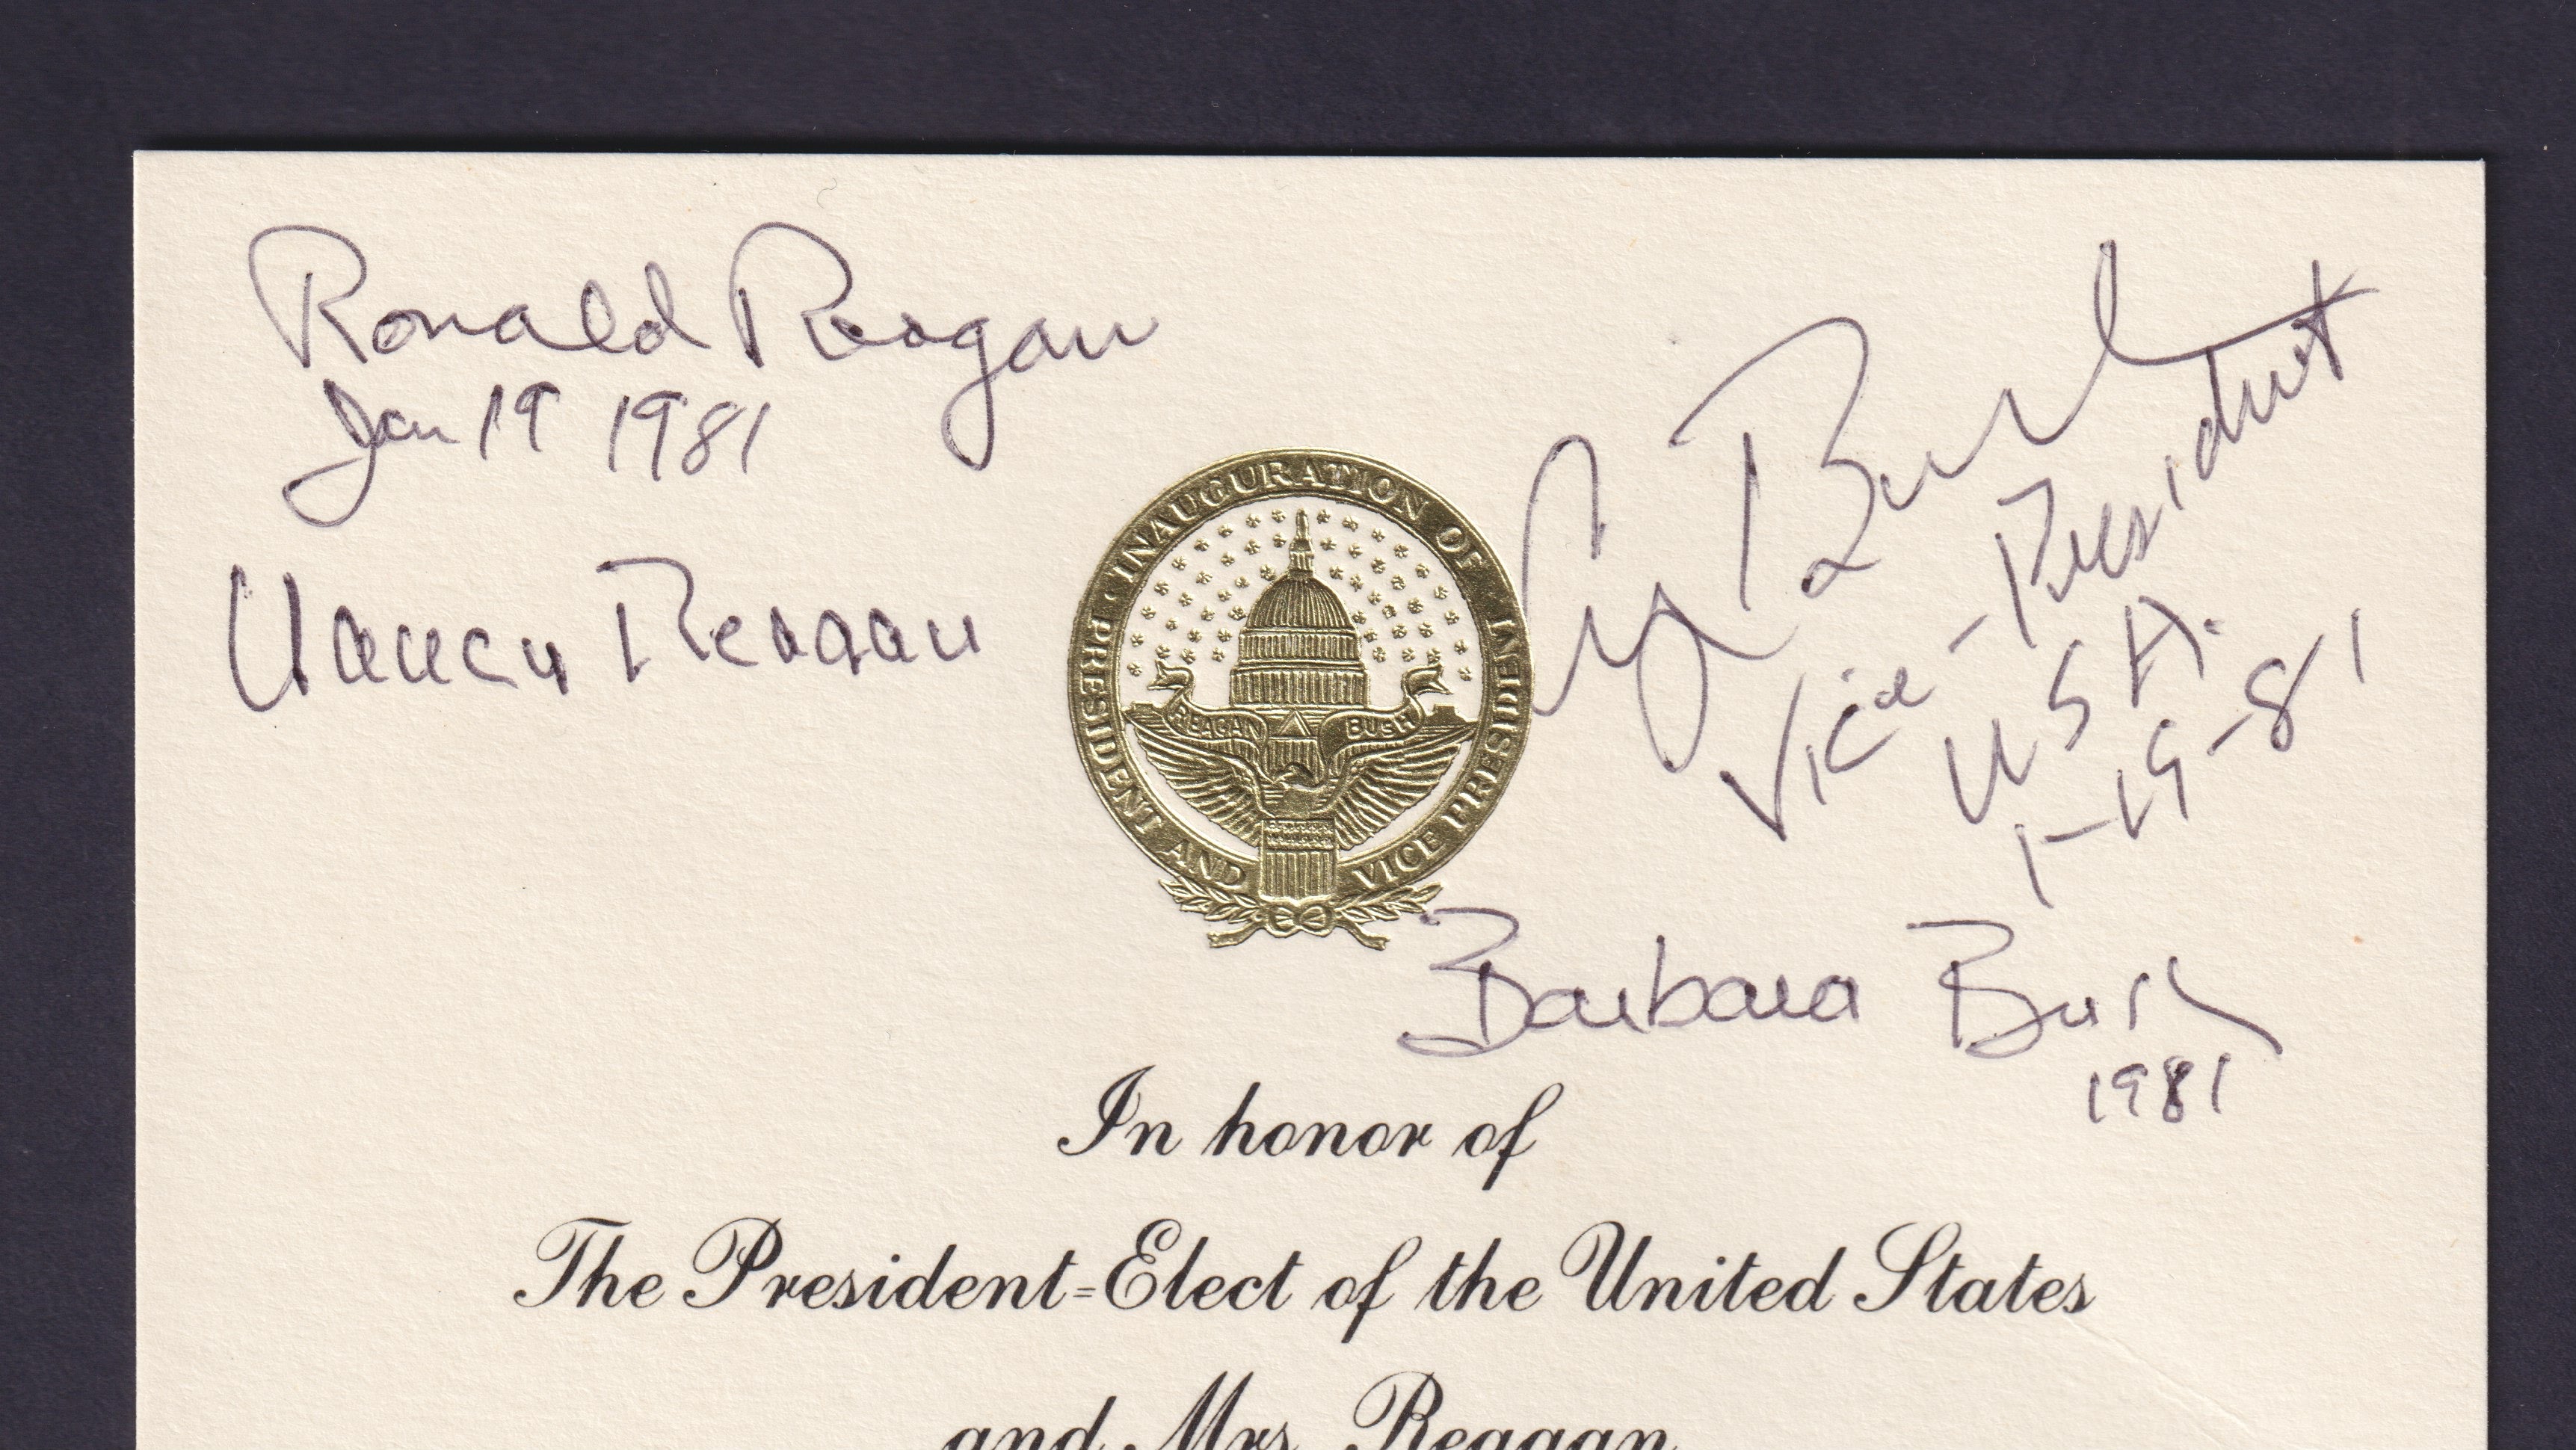 Ronald Reagan
Jan 19 1981
Nancy Reagan
G Bush
Vice-President
USA.
1-19-81
INAUGURATION OF PRESIDENT AND VICE PRESIDENT
REAGAN BUSH
Barbara Bush
1981
In honor of
The President-Elect of the United States
and Mrs. Reagan